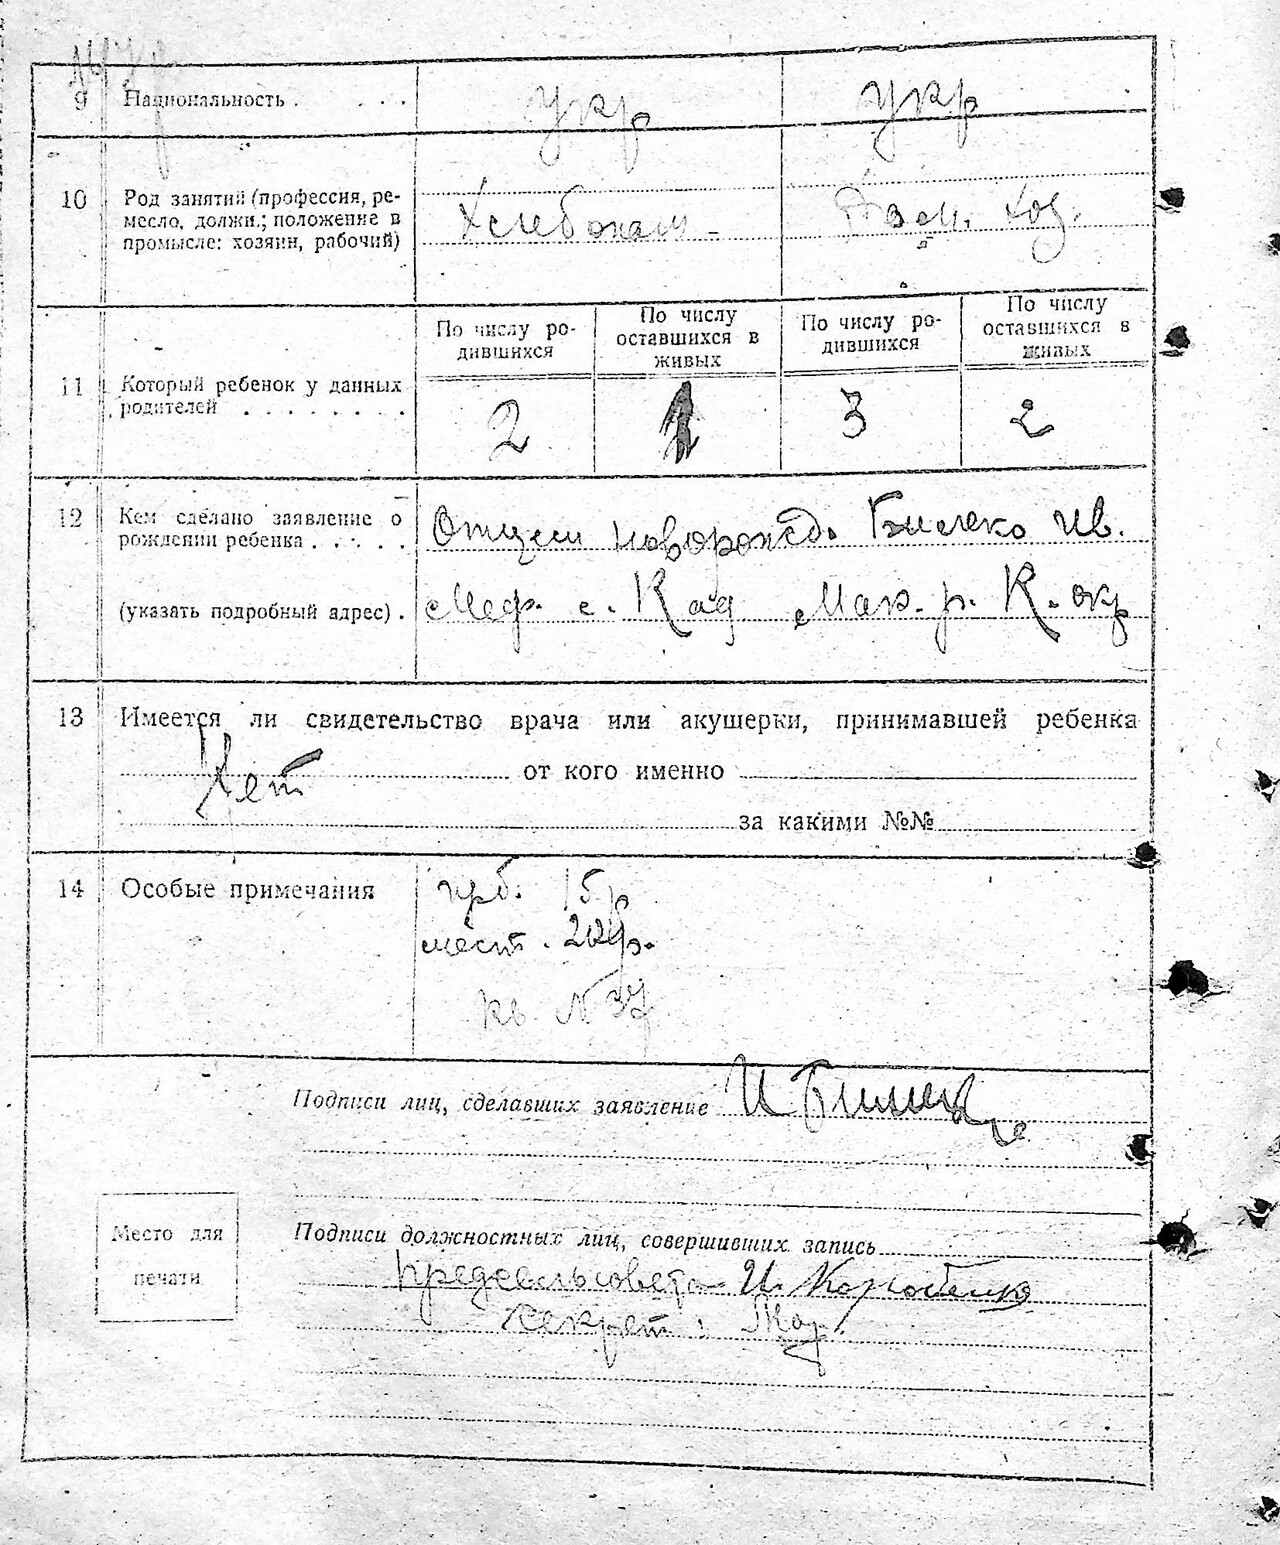 9 Национальность . . . . укр укр
10 Род занятий (профессия, ре-
месло, должн.; положение в
промысле: хозяин, рабочий)
Хлебопаш - Дом. хоз.
11 Который ребенок у данных
родителей . . . . . . . .
По числу ро-
дившихся
По числу
оставшихся в
живых
По числу ро-
дившихся
По числу
оставшихся в
живых
2 1 3 2
12 Кем сделано заявление о
рождении ребенка . . . . .
(указать подробный адрес) .
Отцем новорожд. Ив.
Меф. с. Мак. р. К. окр
13 Имеется ли свидетельство врача или акушерки, принимавшей ребенка
Нет от кого именно
за какими №№
14 Особые примечания
15 р
мест. 20 р.
кв N
Подписи лиц, сделавших заявление И
Место для
печати
Подписи должностных лиц, совершивших запись
Предсельсовета И.
Секрет: